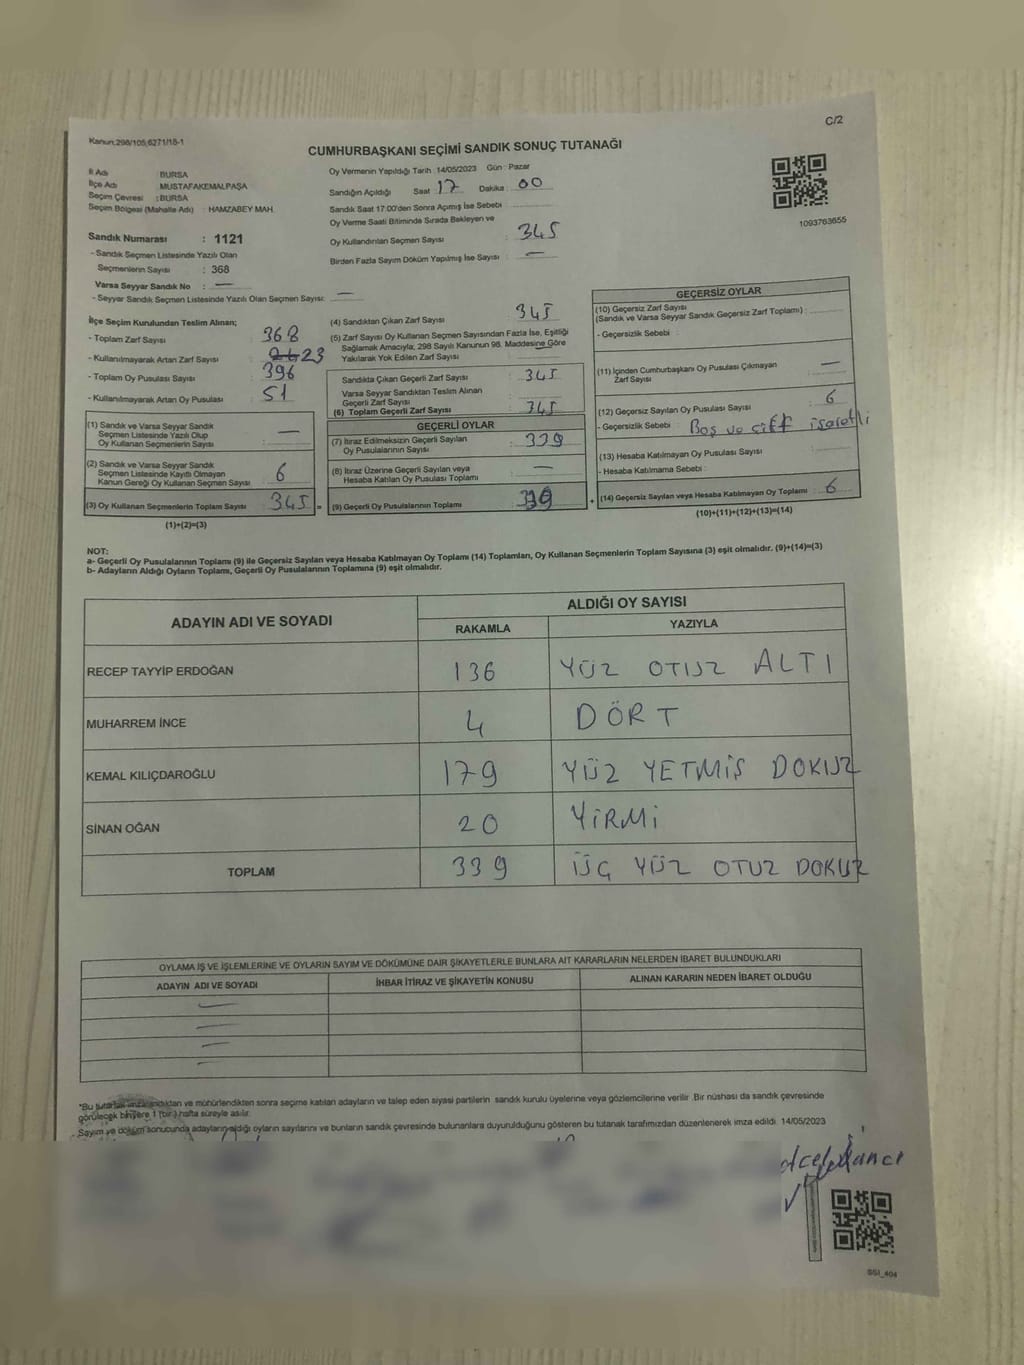 C/2
Kanun:298/105,6271/18-1
CUMHURBAŞKANI SEÇİMİ SANDIK SONUÇ TUTANAĞI
İl Adı : BURSA
İlçe Adı : MUSTAFAKEMALPAŞA
Seçim Çevresi : BURSA
Seçim Bölgesi (Mahalle Adı) : HAMZABEY MAH.
Sandık Numarası : 1121
- Sandık Seçmen Listesinde Yazılı Olan
Seçmenlerin Sayısı : 368
Varsa Seyyar Sandık No : —
- Seyyar Sandık Seçmen Listesinde Yazılı Olan Seçmen Sayısı: —
Oy Vermenin Yapıldığı Tarih 14/05/2023 Gün : Pazar
Sandığın Açıldığı Saat 17 Dakika : 00
Sandık Saat 17:00'den Sonra Açımış İse Sebebi :
Oy Verme Saati Bitiminde Sırada Bekleyen ve
Oy Kullandırılan Seçmen Sayısı : 345
Birden Fazla Sayım Döküm Yapılmış İse Sayısı : —
1093763655
İlçe Seçim Kurulundan Teslim Alınan;
- Toplam Zarf Sayısı : 368
- Kullanılmayarak Artan Zarf Sayısı : 23
- Toplam Oy Pusulası Sayısı : 396
- Kullanılmayarak Artan Oy Pusulası : 51
(1) Sandık ve Varsa Seyyar Sandık
Seçmen Listesinde Yazılı Olup
Oy Kullanan Seçmenlerin Sayısı : —
(2) Sandık ve Varsa Seyyar Sandık
Seçmen Listesinde Kayıtlı Olmayan
Kanun Gereği Oy Kullanan Seçmen Sayısı : 6
(3) Oy Kullanan Seçmenlerin Toplam Sayısı : 345 =
(1)+(2)=(3)
(4) Sandıktan Çıkan Zarf Sayısı : 345
(5) Zarf Sayısı Oy Kullanan Seçmen Sayısından Fazla İse, Eşitliği
Sağlamak Amacıyla; 298 Sayılı Kanunun 98. Maddesine Göre
Yakılarak Yok Edilen Zarf Sayısı :
Sandıkta Çıkan Geçerli Zarf Sayısı : 345
Varsa Seyyar Sandıktan Teslim Alınan
Geçerli Zarf Sayısı :
(6) Toplam Geçerli Zarf Sayısı : 345
GEÇERLİ OYLAR
(7) İtiraz Edilmeksizin Geçerli Sayılan
Oy Pusulalarının Sayısı : 339
(8) İtiraz Üzerine Geçerli Sayılan veya
Hesaba Katılan Oy Pusulası Toplamı : —
(9) Geçerli Oy Pusulalarının Toplamı : 339 +
GEÇERSİZ OYLAR
(10) Geçersiz Zarf Sayısı
(Sandık ve Varsa Seyyar Sandık Geçersiz Zarf Toplamı) :
- Geçersizlik Sebebi :
(11) İçinden Cumhurbaşkanı Oy Pusulası Çıkmayan
Zarf Sayısı : —
(12) Geçersiz Sayılan Oy Pusulası Sayısı : 6
- Geçersizlik Sebebi : Boş ve çift işaretli
(13) Hesaba Katılmayan Oy Pusulası Sayısı :
- Hesaba Katılmama Sebebi :
(14) Geçersiz Sayılan veya Hesaba Katılmayan Oy Toplamı : 6
(10)+(11)+(12)+(13)=(14)
NOT:
a- Geçerli Oy Pusulalarının Toplamı (9) ile Geçersiz Sayılan veya Hesaba Katılmayan Oy Toplamı (14) Toplamları, Oy Kullanan Seçmenlerin Toplam Sayısına (3) eşit olmalıdır. (9)+(14)=(3)
b- Adayların Aldığı Oyların Toplamı, Geçerli Oy Pusulalarının Toplamına (9) eşit olmalıdır.
ADAYIN ADI VE SOYADI
ALDIĞI OY SAYISI
RAKAMLA YAZIYLA
RECEP TAYYİP ERDOĞAN 136 YÜZ OTUZ ALTI
MUHARREM İNCE 4 DÖRT
KEMAL KILIÇDAROĞLU 179 YÜZ YETMİŞ DOKUZ
SİNAN OĞAN 20 YİRMİ
TOPLAM 339 ÜÇ YÜZ OTUZ DOKUZ
OYLAMA İŞ VE İŞLEMLERİNE VE OYLARIN SAYIM VE DÖKÜMÜNE DAİR ŞİKAYETLERLE BUNLARA AİT KARARLARIN NELERDEN İBARET BULUNDUKLARI
ADAYIN ADI VE SOYADI İHBAR İTİRAZ VE ŞİKAYETİN KONUSU ALINAN KARARIN NEDEN İBARET OLDUĞU
—
—
—
—
*Bu tutanak imzalandıktan ve mühürlendikten sonra seçime katılan adayların ve talep eden siyasi partilerin sandık kurulu üyelerine veya gözlemcilerine verilir .Bir nüshası da sandık çevresinde
görülecek bir yere 1 (bir ) hafta süreyle asılır.
- Sayım ve döküm sonucunda adayların aldığı oyların sayılarını ve bunların sandık çevresinde bulunanlara duyurulduğunu gösteren bu tutanak tarafımızdan düzenlenerek imza edildi. 14/05/2023
SSI_404